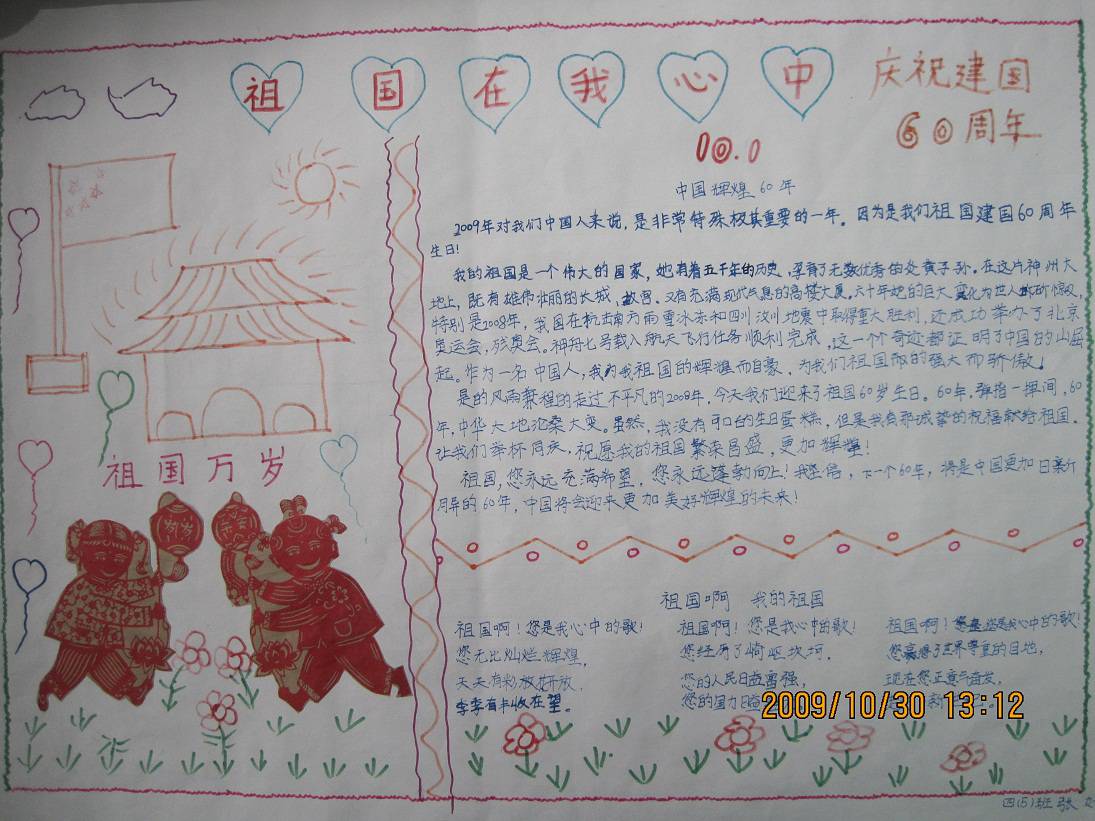 祖国在我心中
庆祝建国
60周年
10.0
中国辉煌60年
2009年对我们中国人来说,是非常特殊极其重要的一年。因为是我们祖国建国60周年
生日!
我的祖国是一个伟大的国家,她有着五千年的历史,孕育了无数优秀的炎黄子孙。在这片神州大
地上,既有雄伟壮丽的长城,故宫。又有充满现代气息的高楼大厦。六十年她的巨大变化为世人所惊叹,
特别是2008年,我国在抗击南方雨雪冰冻和四川汶川地震中取得重大胜利,还成功举办了北京
奥运会,残奥会。神舟七号载人航天飞行任务顺利完成,这一个奇迹都证明了中国的山崛
起。作为一名中国人,我为我祖国的辉煌而自豪,为我们祖国的强大而骄傲。
是的风雨兼程的走过不平凡的2008年,今天我们迎来了祖国60岁生日。60年,弹指一挥间,60
年,中华大地沧桑大变。虽然,我没有可口的生日蛋糕,但是我有那诚挚的祝福献给祖国。
让我们举杯同庆,祝愿我的祖国繁荣昌盛,更加辉煌!
祖国,您永远充满希望,您永远蓬勃向上!我坚信,下一个60年,将是中国更加日新
月异的60年,中国将会迎来更加美好辉煌的未来!
祖国万岁
岁岁
祖国啊 我的祖国
祖国啊!您是我心中的歌!
您无比灿烂辉煌,
天天有彩放开放,
季季有丰收在望。
祖国啊!您是我心中的歌!
您经历了崎岖坎坷,
您的人民日益富强,
您的国力日益
祖国啊!您是我心中的歌!
您赢得了世界尊重的目地,
现在您正意气奋发,
2009/10/30 13:12
四(5)班 张